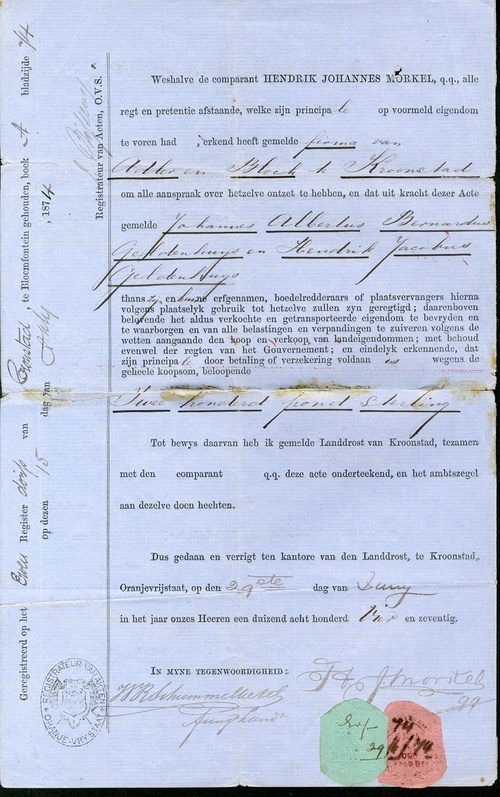 Weshalve de comparant HENDRIK JOHANNES MORKEL, q.q., alle
regt en pretentie afstaande, welke zijn principa le op voormeld eigendom
te voren had , erkend heeft gemelde firma van
Adler en Block te Kroonstad
om alle aanspraak over hetzelve ontzet te hebben, en dat uit kracht dezer Acte
gemelde Johannes Albertus Bernardus
Geldenhuys en Hendrik Jacobus
Geldenhuys
thans zyn hunne erfgenamen, boedelredderaars of plaatsvervangers hierna
volgens plaatselyk gebruik tot hetzelve zullen zyn geregtigd; daarenboven
belovende het aldus verkochte en getransporteerde eigendom te bevryden en
te waarborgen en van alle belastingen en verpandingen te zuiveren volgens de
wetten aangaande den koop en verkoop van landeigendommen; met behoud
evenwel der regten van het Gouvernement; en eindelyk erkennende, dat
zijn principa le door betaling of verzekering voldaan is wegens de
geheele koopsom, beloopende
Twee honderd pond sterling
Tot bewys daarvan heb ik gemelde Landdrost van Kroonstad, tezamen
met den comparant q.q. deze acte onderteekend, en het ambtszegel
aan dezelve doen hechten.
Dus gedaan en verrigt ten kantore van den Landdrost, te Kroonstad,
Oranjevrijstaat, op den 29ste dag van Juny
in het jaar onzes Heeren een duizend acht honderd Vier en zeventig.
IN MYNE TEGENWOORDIGHEID:
H J Morkel
qq
29/6/74
Geregistreerd op het Register van Kroonstad, te Bloemfontein gehouden, boek A bladzijde 74
op dezen 15 dag van July , 1874
Registrateur van Acten, O.V.S.
REGISTRATEUR VAN ACTEN
ORANJE-VRYSTAAT